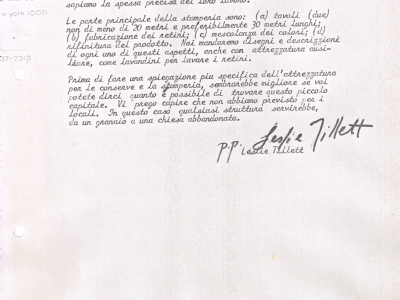 sapiamo la spessa precisa del loro lavoro.
Le parte principale della stamperia sono: (a) tavoli (due)
non di meno di 20 metri e preferibilmente 30 metri lunghi;
(b) fabricazione dei retini; (c) mescolanza dei colori; (d)
rifinitura del prodotto. Noi mandaremo disegni e descrizzioni
di ogni uno di questi aspetti, anche con attrezzatura ausi-
liare, come lavandini per lavare i retini.
Prima di fare una spiegazione piu specifica dell'attrezzatura
per le conserve e la stamperia, sembrarebbe migliore se voi
potete dirci quanto è possibile di trovare questo piccolo
capitale. Vi prego capire che non abbiamo previsto per i
locali. In questo caso qualsiasi struttura servirebbe,
da un granaio a una chiesa abbandonata.
Leslie Tillett
p.p. Leslie Tillett
new york 10021
37-7313